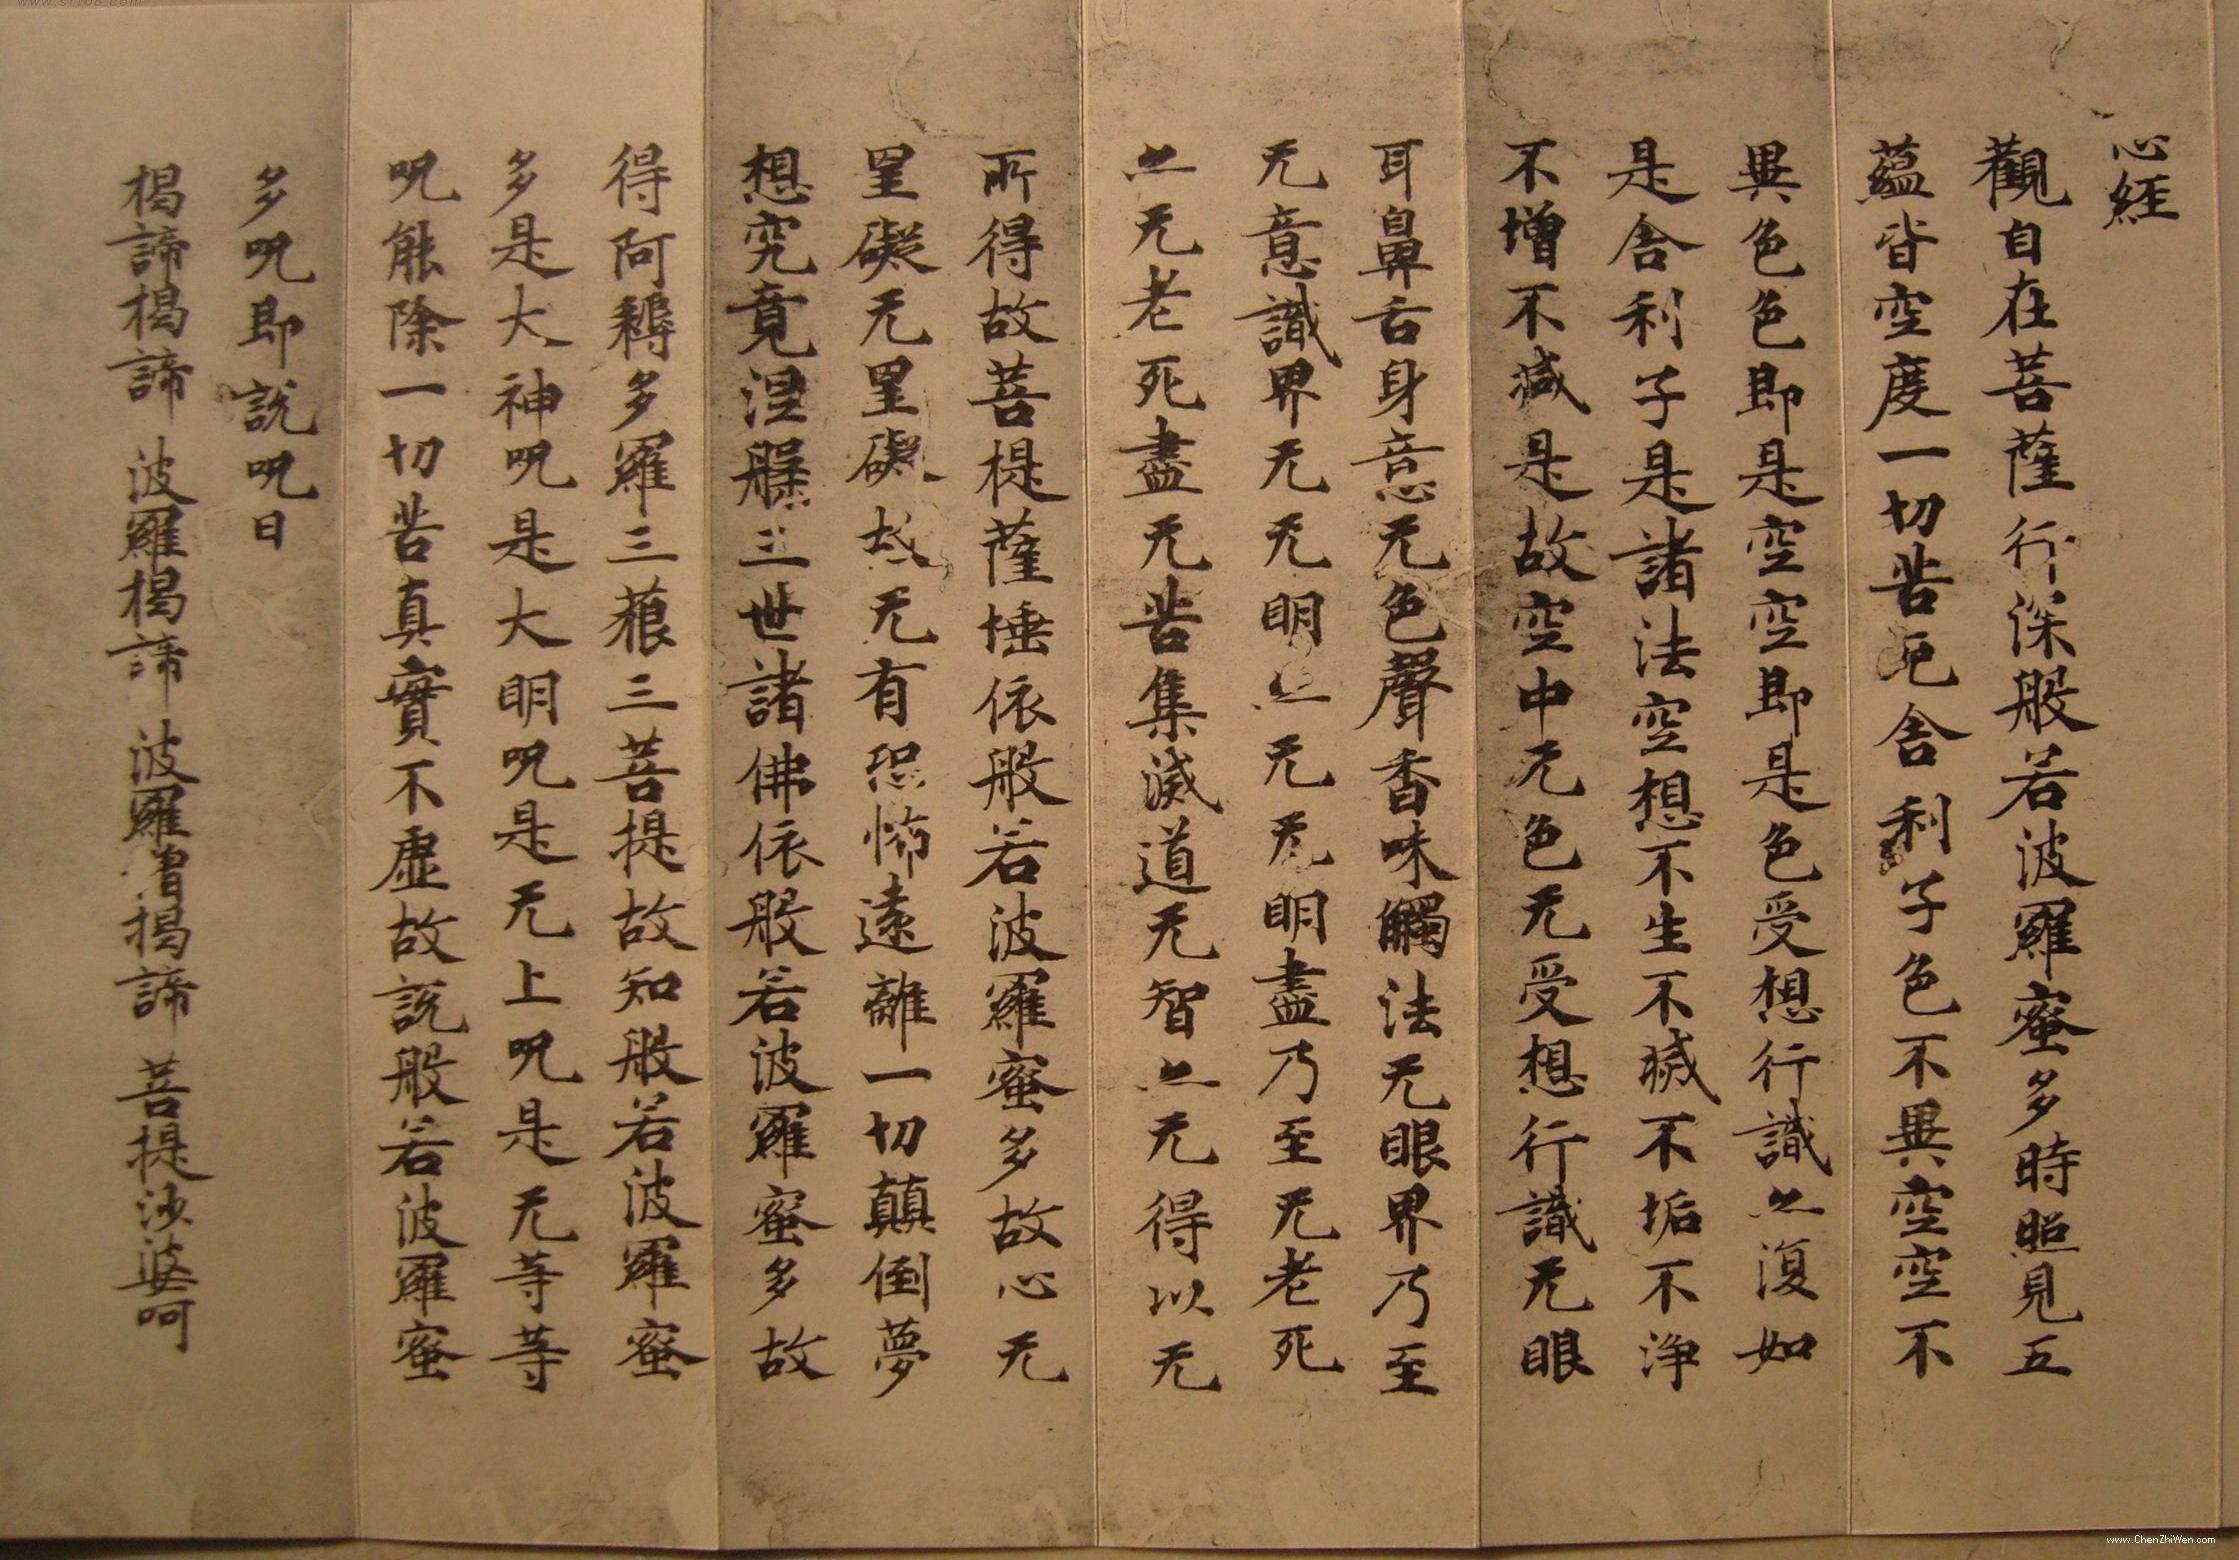 心経
觀自在菩薩行深般若波羅蜜多時照見五
蘊皆空度一切苦厄舍利子色不異空空不
異色色即是空空即是色受想行識亦復如
是舍利子是諸法空想不生不滅不垢不浄
不增不減是故空中无色无受想行識无眼
耳鼻舌身意无色聲香味觸法无眼界乃至
无意識界无无明亦无无明盡乃至无老死
亦无老死盡无苦集滅道无智亦无得以无
所得故菩提薩埵依般若波羅蜜多故心无
罣礙无罣礙故无有恐怖遠離一切顛倒夢
想究竟涅槃三世諸佛依般若波羅蜜多故
得阿耨多羅三藐三菩提故知般若波羅蜜
多是大神呪是大明呪是无上呪是无等等
呪能除一切苦真實不虛故說般若波羅蜜
多呪即說呪曰
揭諦揭諦 波羅揭諦 波羅僧揭諦 菩提沙婆呵
www.ChenZhiWen.com